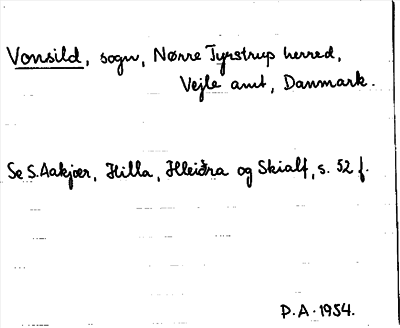 Vonsild, sogn, Nørre Tyrstrup herred,
Vejle amt, Danmark.
Se S. Aakjær, Hilla, Hleiðra og Skialf, s. 52 f.
P.A. 1954.